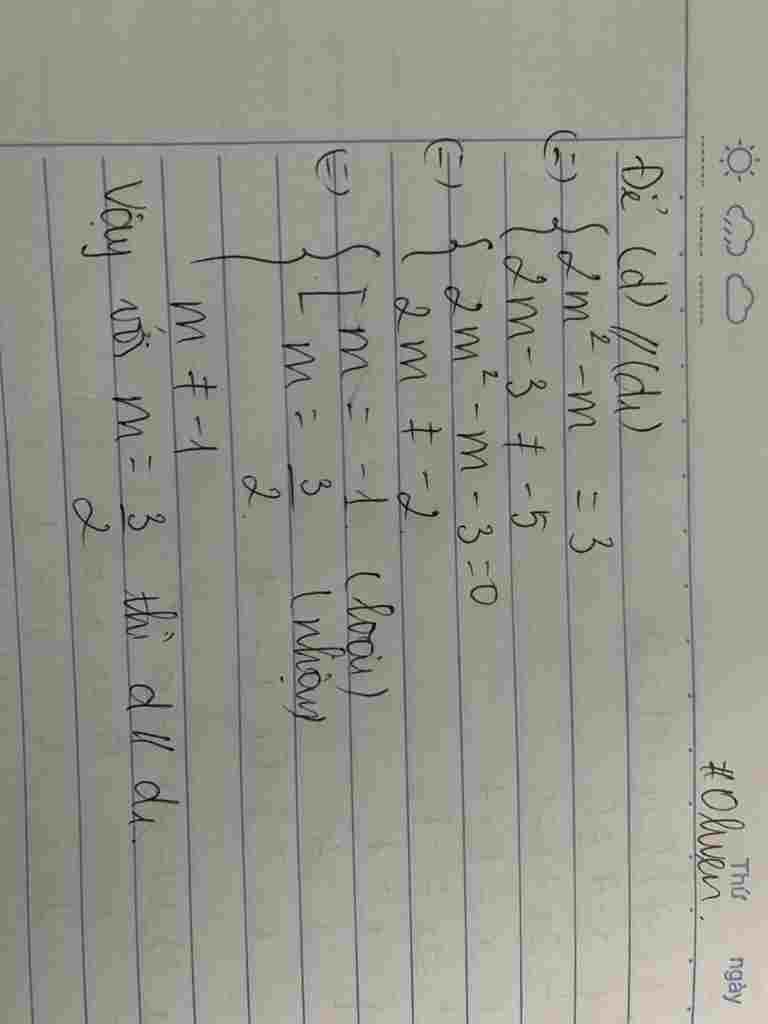 Thứ ngày
#Ohuyen.
Để (d) // (d₁)
(=) { 2m² - m = 3
{ 2m - 3 ≠ -5
(=) { 2m² - m - 3 = 0
{ 2m ≠ -2
(=) { [ m = -1 (loại)
[ m = 3/2 (nhận)
m ≠ -1
Vậy với m = 3/2 thì d // d₁.